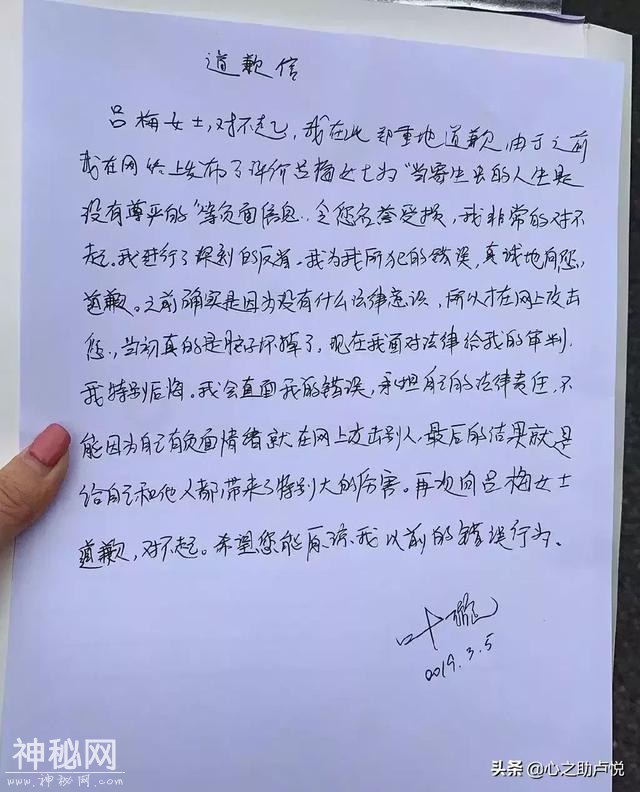 道歉信
吕梅女士,对不起,我在此郑重地道歉,由于之前
我在网络上发布了评价吕梅女士为“当寄生虫的人生是
没有尊严的”等负面信息,令您名誉受损,我非常的对不
起。我进行了深刻的反省。我为我所犯的错误,真诚地向您
道歉。之前确实是因为没有什么法律意识,所以才在网上攻击
您,当初真的是脑子坏掉了,现在我面对法律给我的审判,
我特别后悔。我会直面我的错误,承担自己的法律责任,不
能因为自己有负面情绪就在网上攻击别人,最后的结果就是
给自己和他人都带来了特别大的厉害。再次向吕梅女士
道歉,对不起。希望您能原谅我以前的错误行为。
叶璇
2019.3.5
神秘网
WWW.神秘网.COM
头条@心之助卢悦